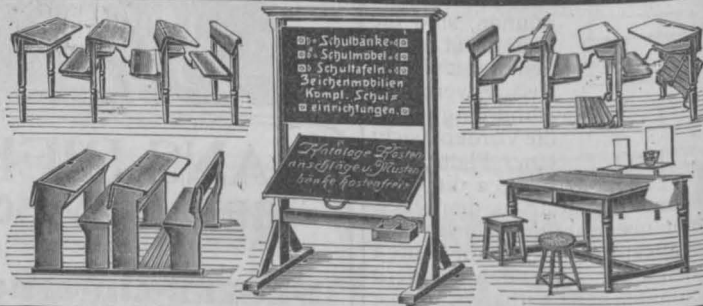 Schulbänke
Schulmöbel
Schultafeln
Zeichenmobilien
Kompl. Schul=
einrichtungen.
Kataloge Kosten
anschläge u. Muster
bänke kostenfrei